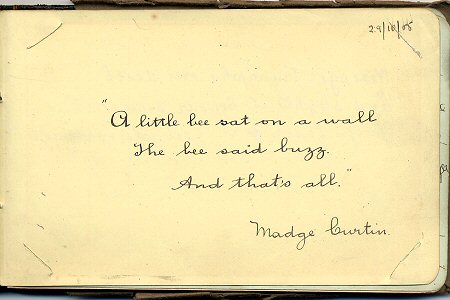 29/10/05
"A little bee sat on a wall
The bee said buzz.
And that's all."
Madge Curtin.